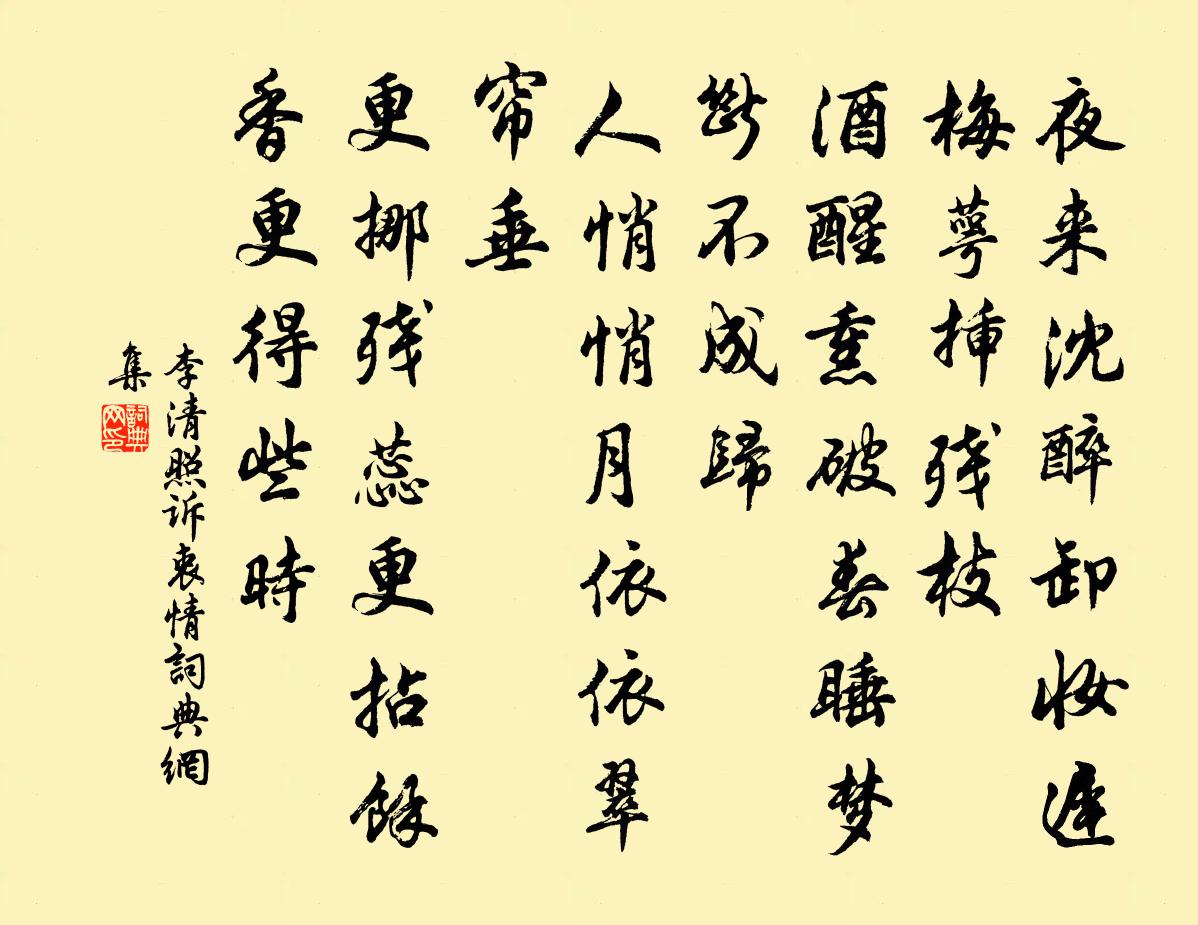 夜来沈醉卸妆遲
梅萼插残枝
酒醒熏破春睡梦
斷不成歸
人悄悄月依依翠
帘垂
更挪残蕊更拈餘
香更得些時
李清照訴衷情詞典網
集
詞典網印